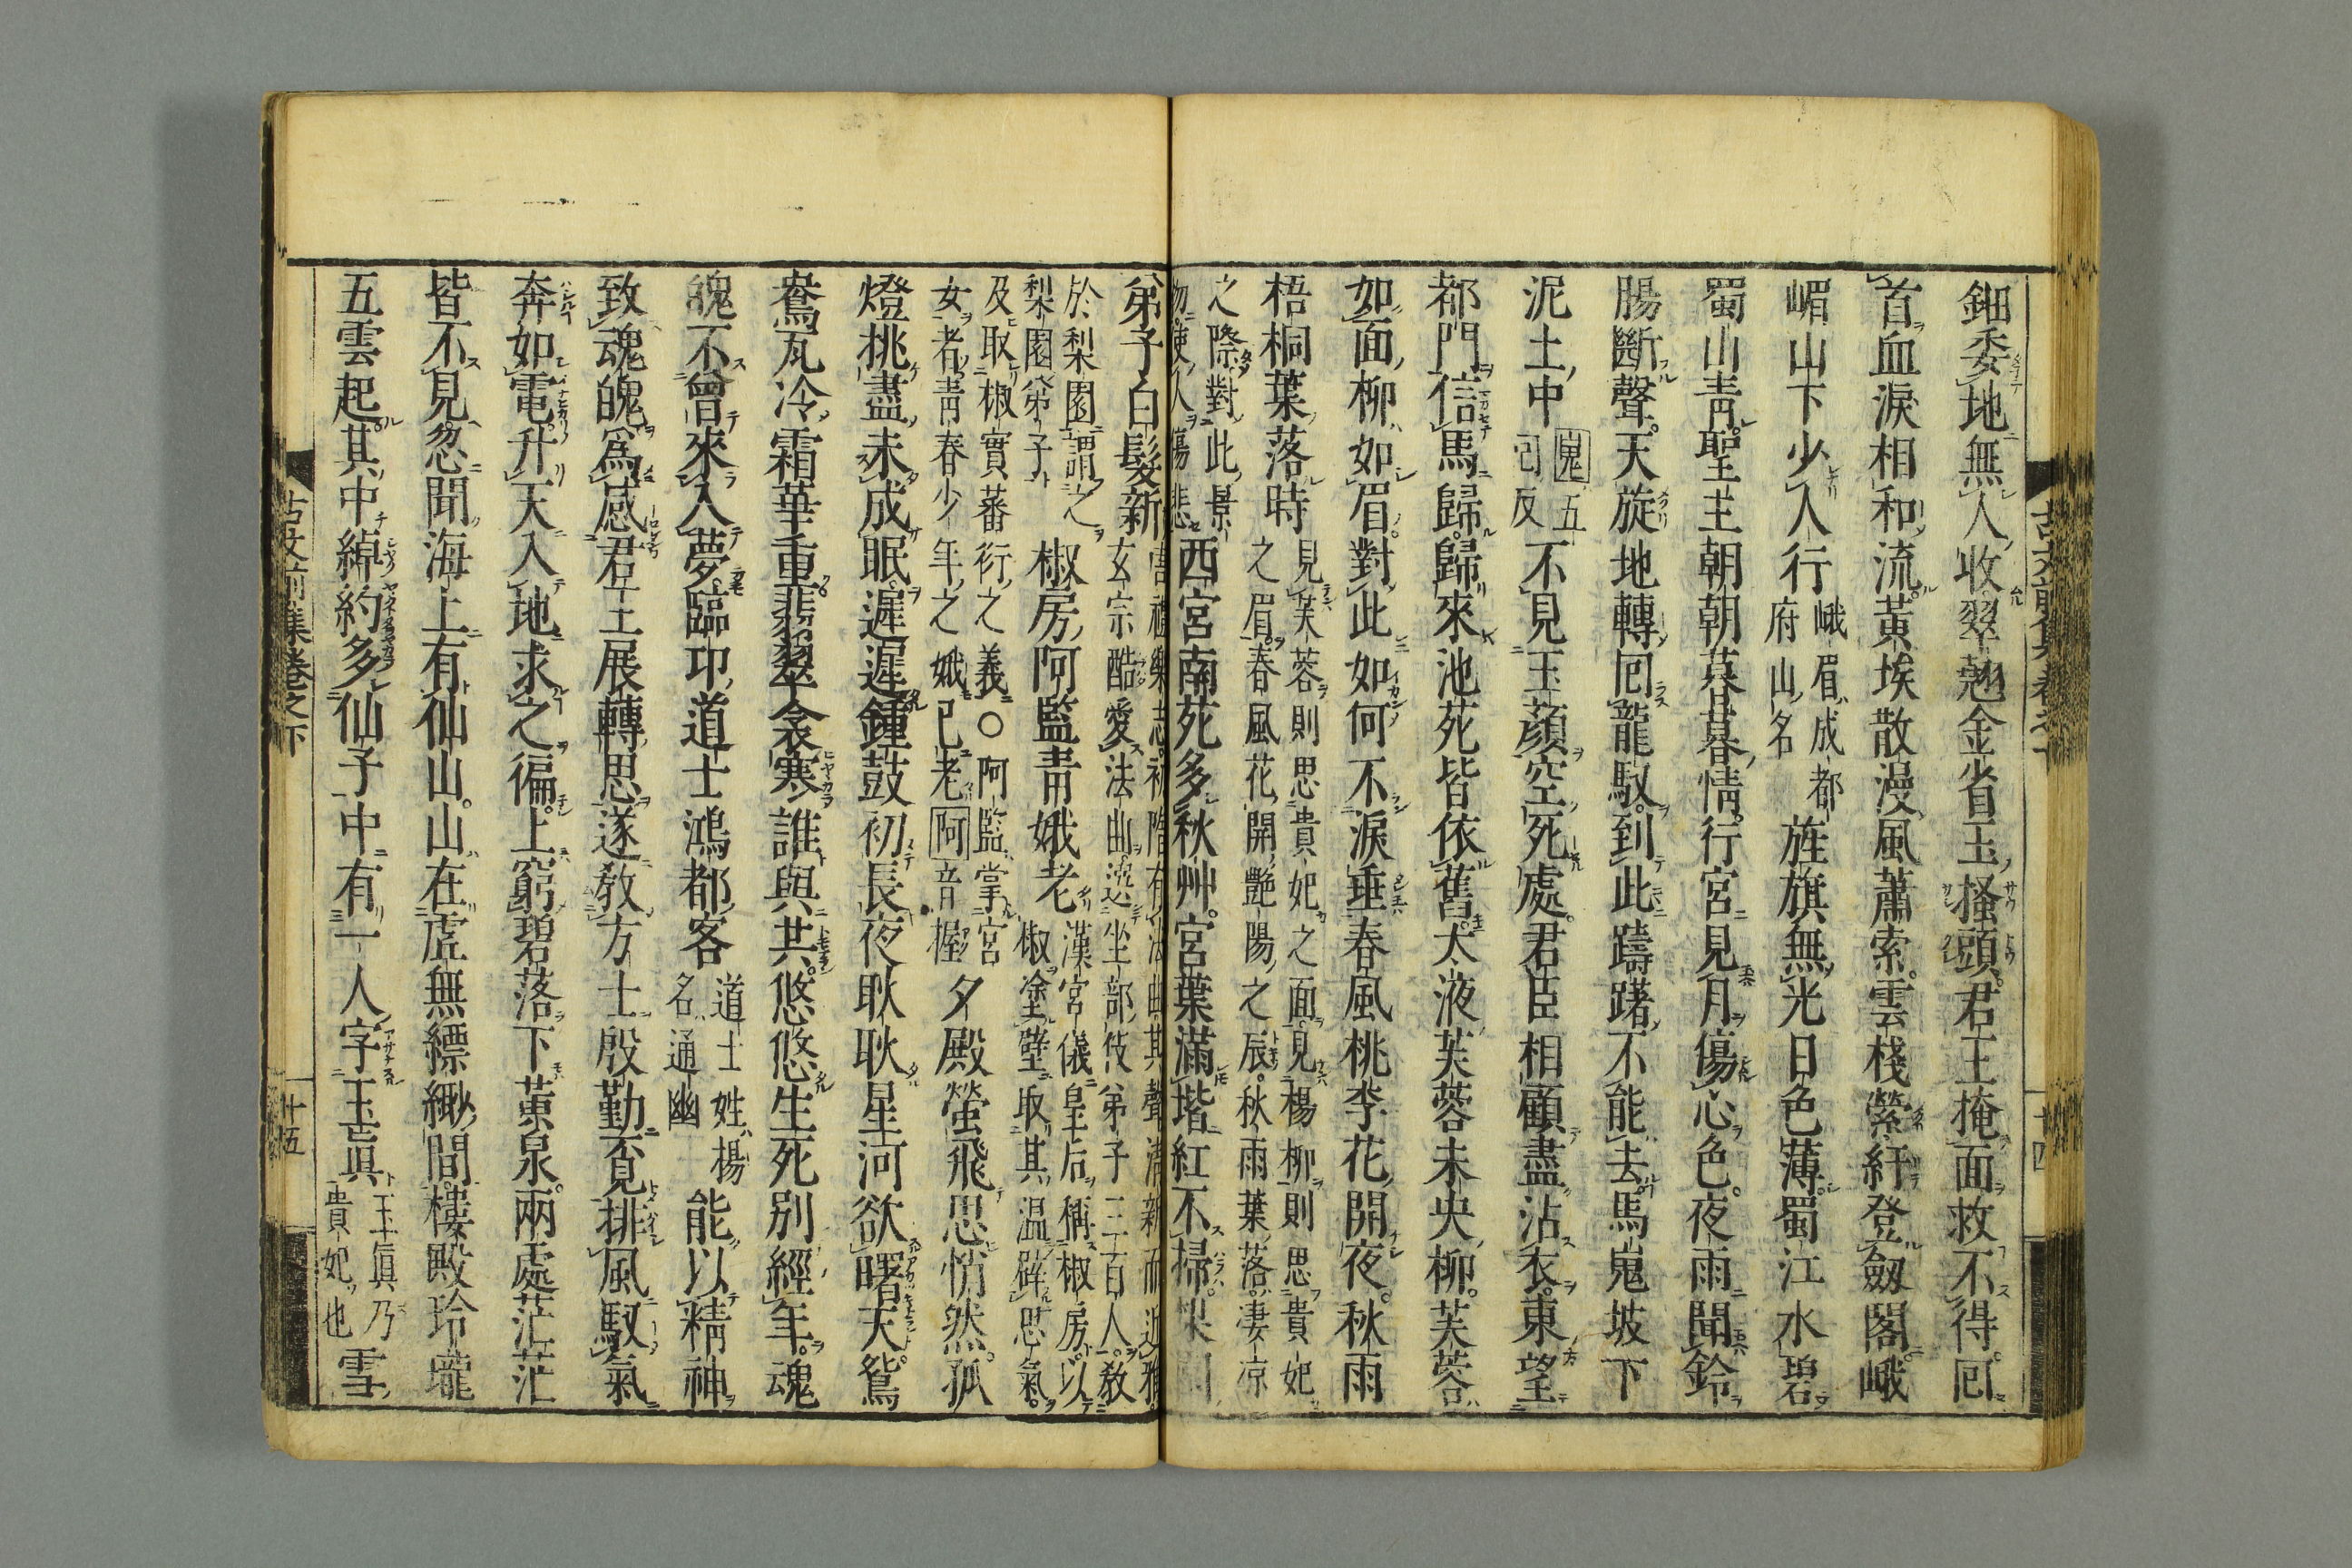 鈿委地無人收翠翹金雀玉搔頭君王掩面救不得囘
首血淚相和流黃埃散漫風蕭索雲棧縈紆登劒閣峨
嵋山下少人行峨眉成都府山名旌旗無光日色薄蜀江水碧
蜀山靑聖主朝朝暮暮情行宮見月傷心色夜雨聞鈴
腸斷聲天旋地轉囘龍馭到此躊躇不能去馬嵬坡下
泥土中嵬五囘反不見玉顏空死處君臣相顧盡沾衣東望
都門信馬歸歸來池苑皆依舊太液芙蓉未央柳芙蓉
如面柳如眉對此如何不淚垂春風桃李花開夜秋雨
梧桐葉落時見芙蓉則思貴妃之面見楊柳則思貴妃之眉春風花開艷陽之辰秋雨葉落凄凉
之際對此景物使人傷悲西宮南苑多秋艸宮葉滿堦紅不掃梨園
弟子白髮新唐禮樂志初隋有法曲其聲淸新而近雅玄宗酷愛法曲選坐部伎弟子三百人敎
於梨園謂之梨園弟子椒房阿監靑娥老漢宮儀皇后稱椒房以椒塗壁取其温辟惡氣
及取椒實蕃衍之義〇阿監掌宮女者靑春少年之娥已老阿音握夕殿螢飛思悄然孤
燈挑盡未成眠遲遲鍾鼓初長夜耿耿星河欲曙天鴛
鴦瓦冷霜華重翡翠衾寒誰與共悠悠生死別經年魂
魄不曾來入夢臨卭道士鴻都客道士姓楊名通幽能以精神
致魂魄爲感君王展轉思遂敎方士殷勤覔排風馭氣
奔如電升天入地求之徧上窮碧落下黃泉兩處茫茫
皆不見忽聞海上有仙山山在虛無縹緲間樓殿玲瓏
五雲起其中綽約多仙子中有一人字玉眞玉眞乃貴妃也雪
古文前集卷之下
廿四
古文前集卷之下
廿五